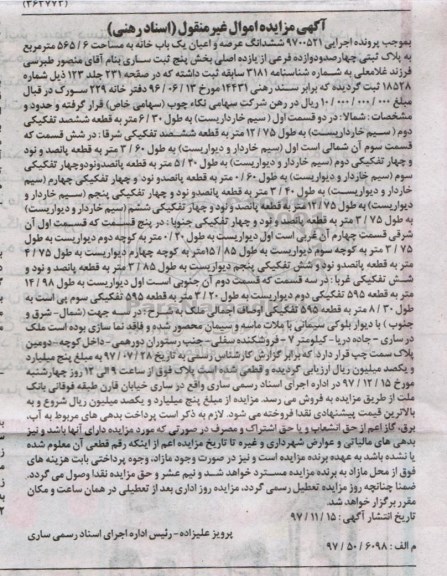 (۳۶۲۷۷۲)
آگهی مزایده اموال غیرمنقول (اسناد رهنی)
بموجب پرونده اجرایی ۹۷۰۰۵۲۱ ششدانگ عرصه و اعیان یک باب خانه به مساحت ۶ / ۵۶۵ مترمربع
به پلاک ثبتی چهارصدودوازده فرعی از یازده اصلی بخش پنج ثبت ساری بنام آقای منصور طبرسی
فرزند غلامعلی به شماره شناسنامه ۳۱۸۱ سابقه ثبت داشته که در صفحه ۲۳۱ جلد ۱۲۳ ذیل شماره
۱۸۵۲۸ ثبت گردیده که برابر سند رهنی ۱۴۴۳۱ مورخ ۱۳ / ۰۶ / ۹۶ دفتر خانه ۲۲۹ سورک در قبال
مبلغ ۱۰ / ۰۰۰ / ۰۰۰ / ۰۰۰ ریال در رهن شرکت سهامی نگاه چوب (سهامی خاص) قرار گرفته و حدود و
مشخصات : شمالا : در دو قسمت اول (سیم خارداریست) به طول ۳۰ / ۶ متر به قطعه ششصد تفکیکی
دوم (سیم خارداریست) به طول ۷۵ / ۱۲ متر به قطعه ششصد تفکیکی شرقا : در شش قسمت که
قسمت سوم آن شمالی است اول (سیم خاردار و دیواریست) به طول ۶۰ / ۳ متر به قطعه پانصد و نود
و چهار تفکیکی دوم (سیم خاردار و دیواریست) به طول ۳۰ / ۵ متر به قطعه پانصدونودوچهار تفکیکی
سوم (سیم خاردار و دیواریست) به طول ۶۰ / ۰ متر به قطعه پانصدو نود و چهار تفکیکی چهارم (سیم
خاردار و دیواریست) به طول ۴۰ / ۳ متر به قطعه پانصدو نود و چهار تفکیکی پنجم (سیم خاردار و
دیواریست) به طول ۷۵ / ۱۲ متر به قطعه پانصدو نود و چهار تفکیکی ششم (سیم خاردار و دیواریست)
به طول ۷۵ / ۳ متر به قطعه پانصد و نود و چهار تفکیکی جنوبا : در پنج قسمت که قسمت اول آن
شرقی قسمت چهارم آن غربی است اول دیواریست به طول ۲۰ / ۰ متر به کوچه دوم دیواریست به طول
۷۵ / ۳ متر به کوچه سوم دیواریست به طول ۸۵ / ۱۵ متر به کوچه چهارم دیواریست به طول ۷۵ / ۴
متر به قطعه پانصدو نود و شش تفکیکی پنجم دیواریست به طول ۸۵ / ۳ متر به قطعه پانصد و نود و
شش تفکیکی غربا : در سه قسمت که قسمت دوم آن جنوبی است اول دیواریست به طول ۹۸ / ۱۴
متر به قطعه ۵۹۵ تفکیکی دوم دیواریست به طول ۲۰ / ۳ متر به قطعه ۵۹۵ تفکیکی سوم پی است به
طول ۳۰ / ۸ متر به قطعه ۵۹۵ تفکیکی اوصاف اجمالی ملک به شرح : در سه جهت (شمال - شرق و
جنوب) با دیوار بلوکی سیمانی با ملات ماسه و سیمان محصور شده و فاقد نما سازی بوده است ملک
در ساری - جاده دریا - کیلومتر ۷ - فروشکنده سفلی - جنب رستوران دورهمی - داخل کوچه - دومین
پلاک سمت چپ قرار دارد که برابر گزارش کارشناس رسمی به تاریخ ۲۸ / ۰۷ / ۹۷ به مبلغ پنج میلیارد
و یکصد میلیون ریال ارزیابی گردیده و قطعی شده است پلاک فوق از ساعت ۹ الی ۱۲ روز چهارشنبه
مورخ ۱۵ / ۱۲ / ۹۷ در اداره اجرای اسناد رسمی ساری واقع در ساری خیابان قارن طبقه فوقانی بانک
ملت از طریق مزایده به فروش می رسد. مزایده از مبلغ پنج میلیارد و یکصد میلیون ریال شروع و به
بالاترین قیمت پیشنهادی نقدا فروخته می شود. لازم به ذکر است پرداخت بدهی های مربوط به آب،
برق، گاز اعم از حق انشعاب و یا حق اشتراک و مصرف در صورتی که مورد مزایده دارای آنها باشد و نیز
بدهی های مالیاتی و عوارض شهرداری و غیره تا تاریخ مزایده اعم از اینکه رقم قطعی آن معلوم شده
یا نشده باشد به عهده برنده مزایده است و نیز در صورت وجود مازاد، وجوه پرداختی بابت هزینه های
فوق از محل مازاد به برنده مزایده مسترد خواهد شد و نیم عشر و حق مزایده نقدا وصول می گردد.
ضمنا چنانچه روز مزایده تعطیل رسمی گردد، مزایده روز اداری بعد از تعطیلی در همان ساعت و مکان
مقرر برگزار خواهد شد.
تاریخ انتشار آگهی : ۱۵ / ۱۱ / ۹۷
پرویز علیزاده - رئیس اداره اجرای اسناد رسمی ساری
م الف : ۶۰۹۸ / ۵۰ / ۹۷